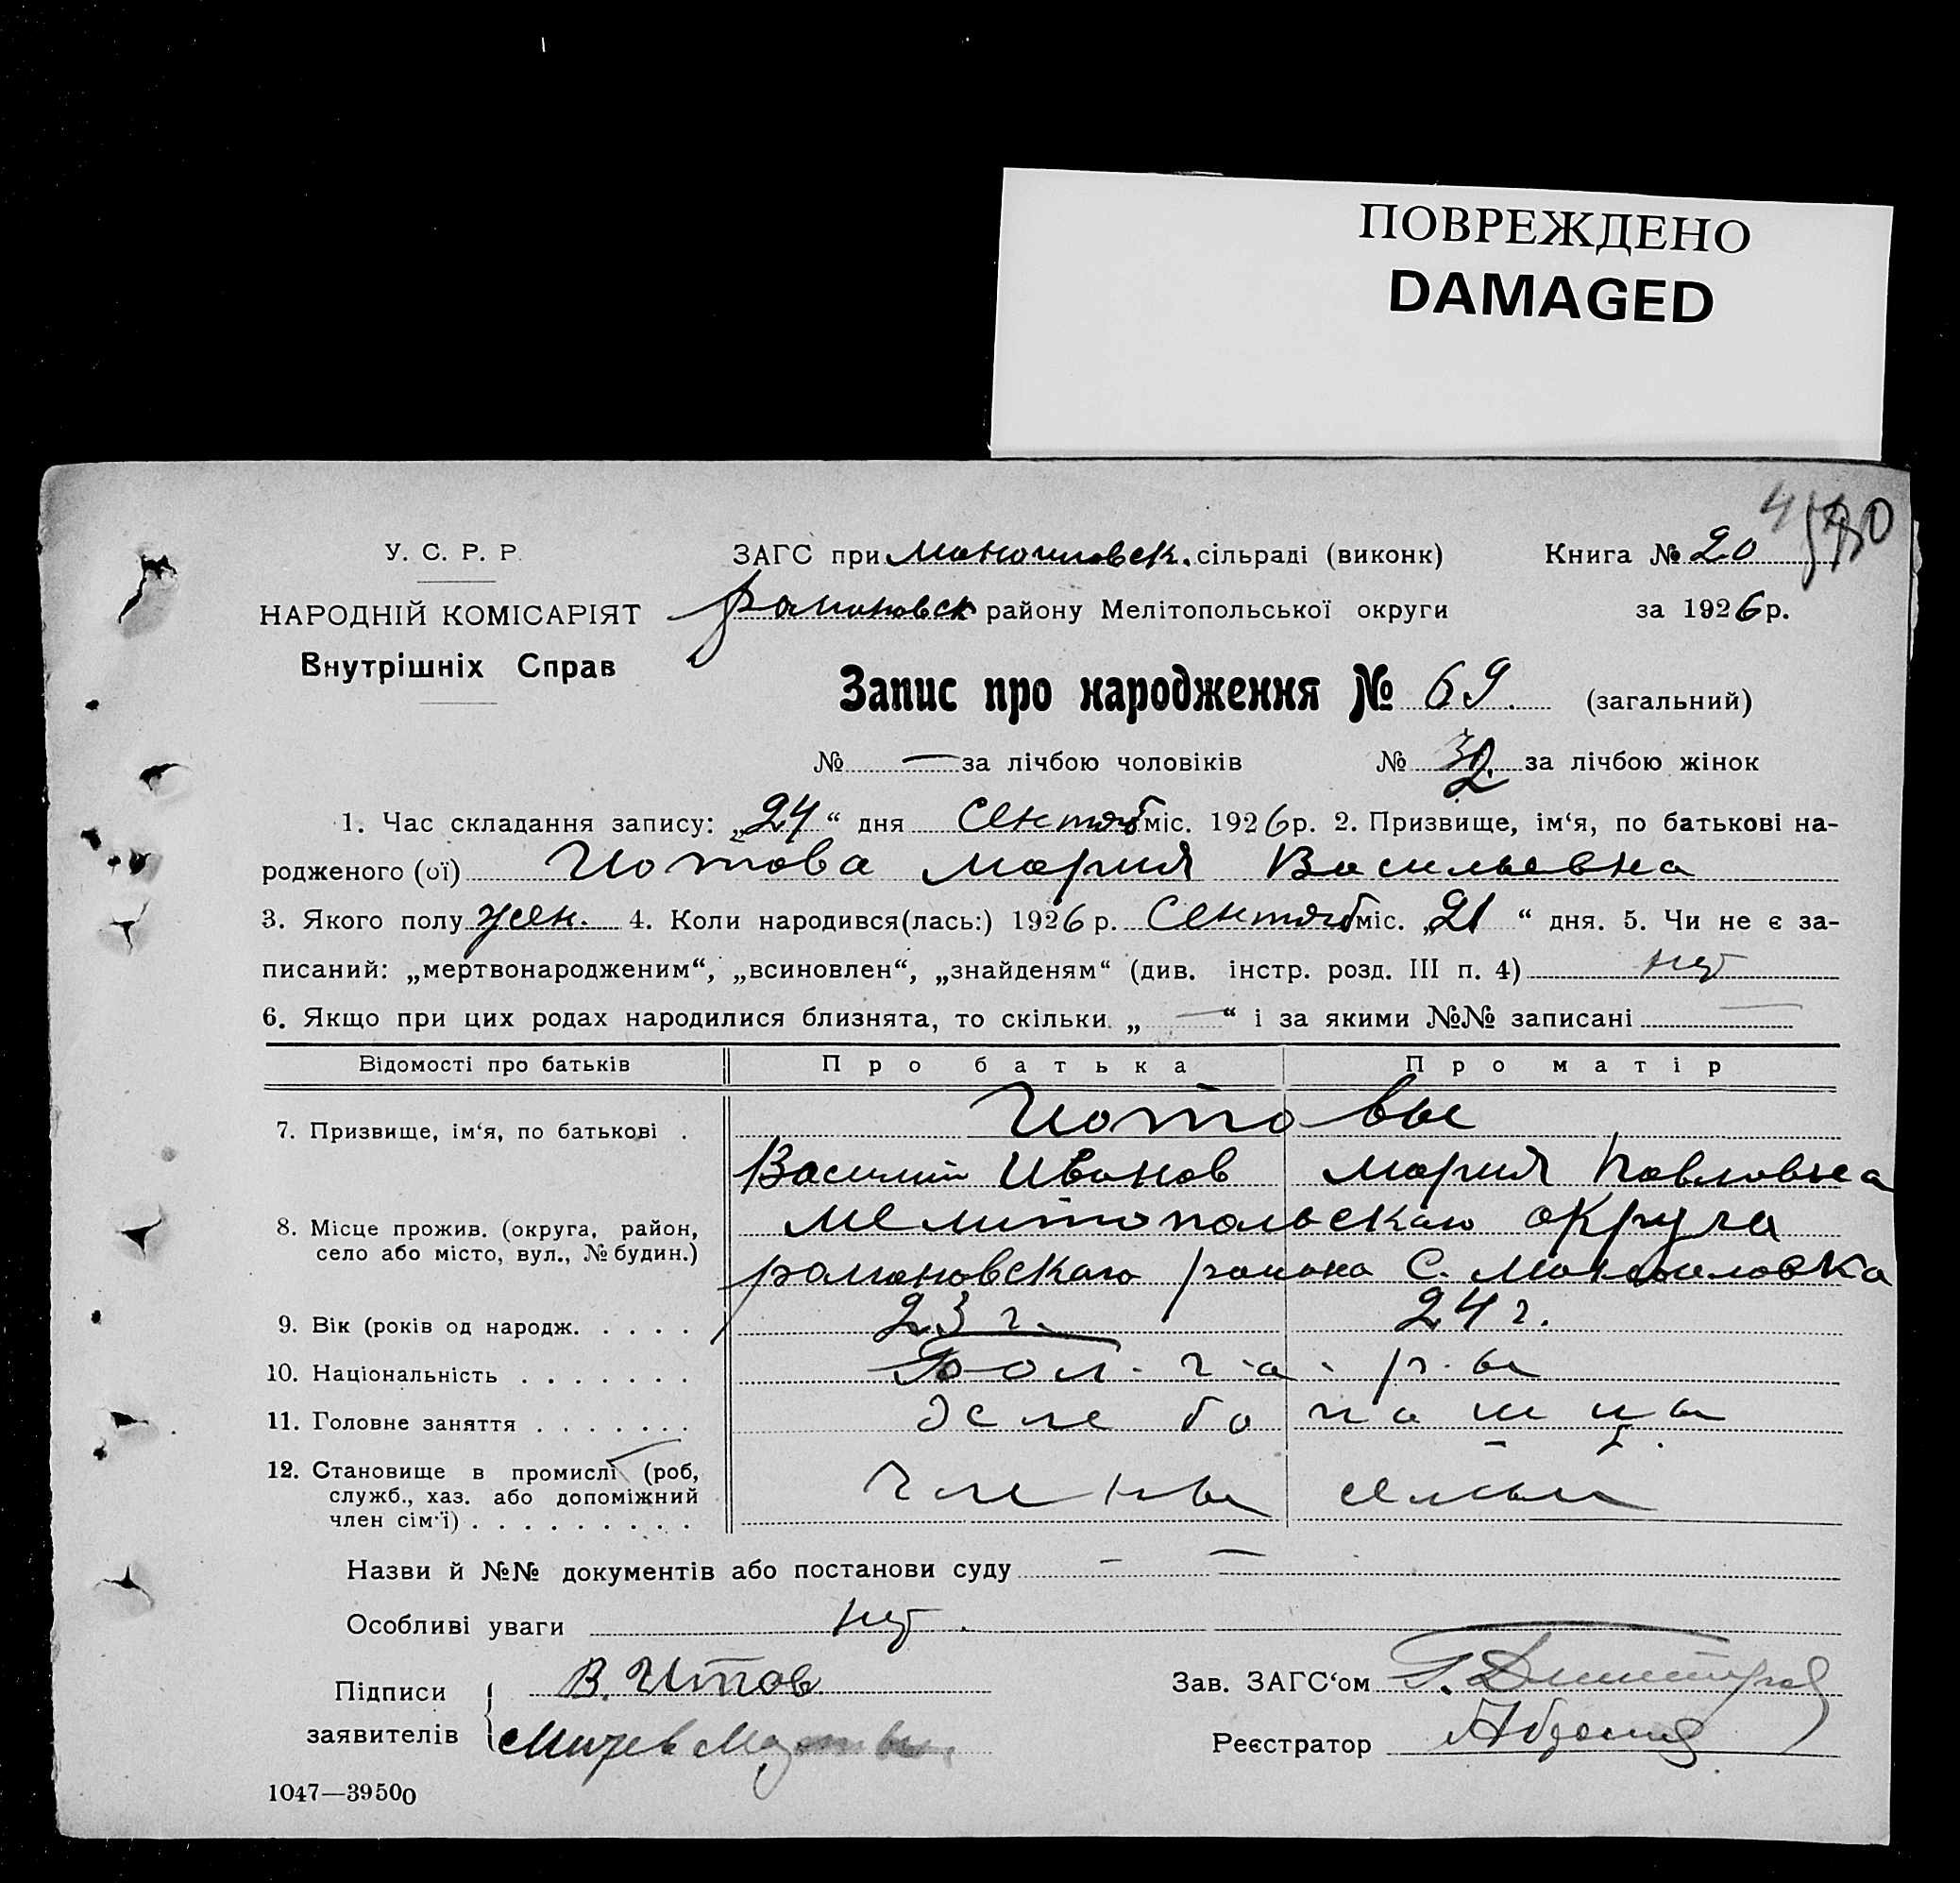 ПОВРЕЖДЕНО
DAMAGED
У. С. Р. Р. ЗАГС при Маноиловск. сільраді (виконк) Книга № 20
НАРОДНІЙ КОМІСАРІЯТ Романовск району Мелітопольської округи за 1926 р.
Внутрішніх Справ
Запис про народження № 69. (загальний)
№ — за лічбою чоловіків № 32. за лічбою жінок
1. Час складання запису: „24“ дня Сентяб міс. 1926 р. 2. Призвище, ім‘я, по батькові на-
родженого (ої) Иотова Мария Васильевна
3. Якого полу жен. 4. Коли народився(лась:) 1926 р. Сентяб міс. „21“ дня. 5. Чи не є за-
писаний: „мертвонародженим“, „всиновлен“, „знайденям“ (див. інстр. розд. III п. 4) нет
6. Якщо при цих родах народилися близнята, то скільки „ — “ і за якими №№ записані —
Відомості про батьків Про батька Про матір
7. Призвище, ім‘я, по батькові . Иотовы
Василий Иванов Мария Павловна
8. Місце прожив. (округа, район, Мелитопольскаго округа
село або місто, вул., № будин.) романовскаго района С. Маноиловка
9. Вік (років од народж. . . . . 23 г. 24 г.
10. Національність . . . . . . . Болгары
11. Головне заняття . . . . . . . Хлебопашцы
12. Становище в промислі (роб, члены семьи
служб., хаз. або допоміжний
член сім‘ї) . . . . . . . . .
Назви й №№ документів або постанови суду — —
Особливі уваги нет.
Підписи В. Итов Зав. ЗАГС‘ом
заявителів Реєстратор
1047—39500